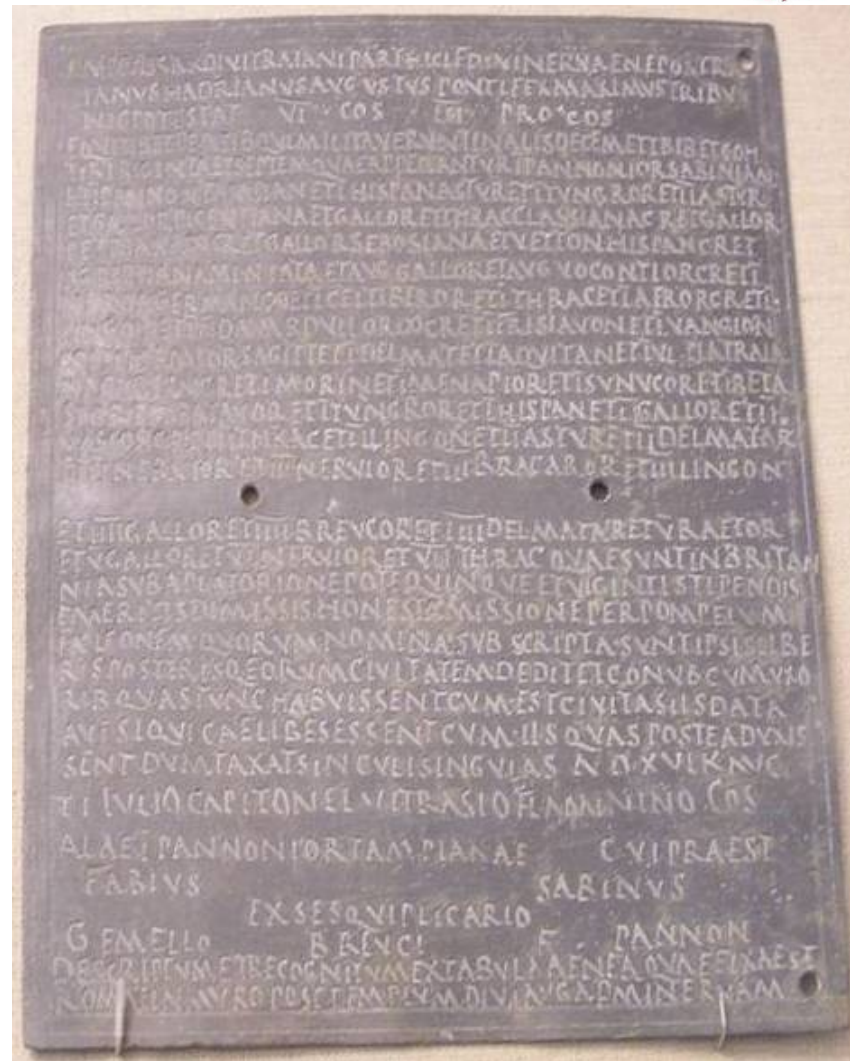 IMP CAESAR DIVI TRAIANI PARTHICI F DIVI NERVAE NEPOS TRA
IANVS HADRIANVS AVGVSTVS PONTIFEX MAXIMVS TRIBV
NIC POTESTAT VI COS III PROCOS
EQVITIB ET PEDITIB QVI MILITAVERVNT IN ALIS DECEM ET TRIB ET COH
TRIGINTA ET SEPTEM QVAE APPELLANTVR I PANNONIOR SABINIAN
ET I PANNON ET I HISPAN ASTVR ET I TVNGROR ET II ASTVR
ET GALLOR PICENTIANA ET GALLOR ET THRAC CLASSIANA C R ET GALLOR
ET GALLOR SEBOSIANA ET VETTON HISPAN C R ET
ET AVG GALLOR ET AVG VOCONTIOR C R ET I
ET I CELTIBEROR ET I THRAC ET I AFROR C R ET I
LINGON ET I FRISIAVON ET I VANGION
SAGITT ET I DELMAT ET I AQVITAN ET I VLPIA TRAIA
ET I MORIN ET I MENAPIOR ET I SVNVCOR ET I BETA
ET I BATAVOR ET I TVNGROR ET I HISPAN ET II GALLOR ET II
VASCON C R ET II THRAC ET II LINGON ET II ASTVR ET II DELMATAR
ET II NERVIOR ET III NERVIOR ET III BRACAROR ET III LINGON
ET IIII GALLOR ET IIII BREVCOR ET IIII DELMATAR ET V RAETOR
ET V GALLOR ET VI NERVIOR ET VII THRAC QVAE SVNT IN BRITAN
NIA SVB A PLATORIO NEPOTE QVINQVE ET VIGINTI STIPENDIS
EMERITIS DIMISSIS HONESTA MISSIONE PER POMPEIVM
FALCONEM QVORVM NOMINA SVBSCRIPTA SVNT IPSIS LIBE
RIS POSTERISQ EORVM CIVITATEM DEDIT ET CONVB CVM VXO
RIB QVAS TVNC HABVISSENT CVM EST CIVITAS IIS DATA
AVT SIQVI CAELIBES ESSENT CVM IIS QVAS POSTEA DVXIS
SENT DVMTAXAT SINGVLI SINGVLAS A D XVI K AVG
TI IVLIO CAPITONE L VITRASIO FLAMININO COS
ALAE I PANNONIOR TAMPIANAE CVI PRAEST
FABIVS SABINVS
EX SESQVIPLICARIO
GEMELLO BREVCI F PANNON
DESCRIPTVM ET RECOGNITVM EX TABVLA AENEA QVAE FIXA EST
ROMAE IN MVRO POST TEMPLVM DIVI AVG AD MINERVAM